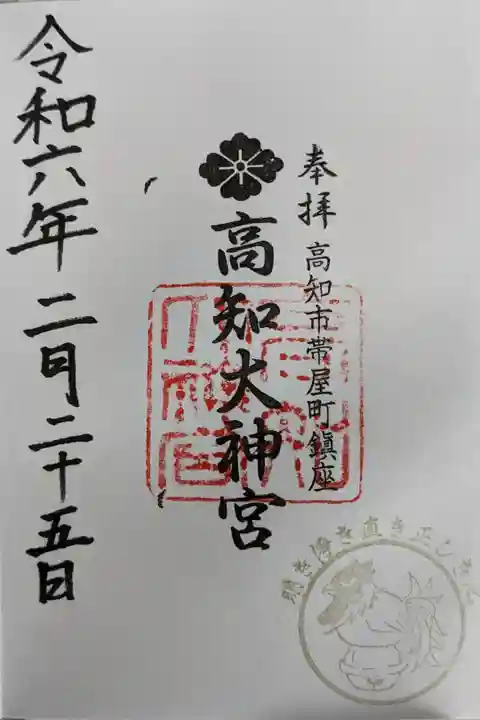 奉拝
高知市帯屋町鎮座
高知大神宮
令和六年二月二十五日